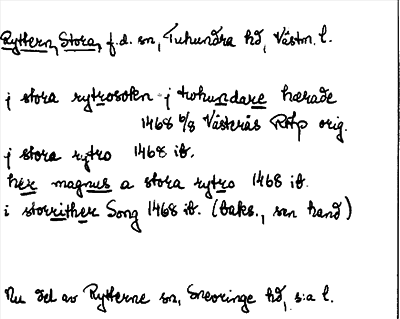 Ryttern, Stora, f.d. sn, Tuhundra hd, Västm. l.
j stora rytrosokn j trohundare hærade
1468 6/8 Västerås RApp orig.
j stora rytro 1468 ib.
hær magnus a stora rytro 1468 ib.
i storrither Song 1468 ib. (baks., sen hand)
Nu del av Rytterne sn, Snevringe hd, s:a l.